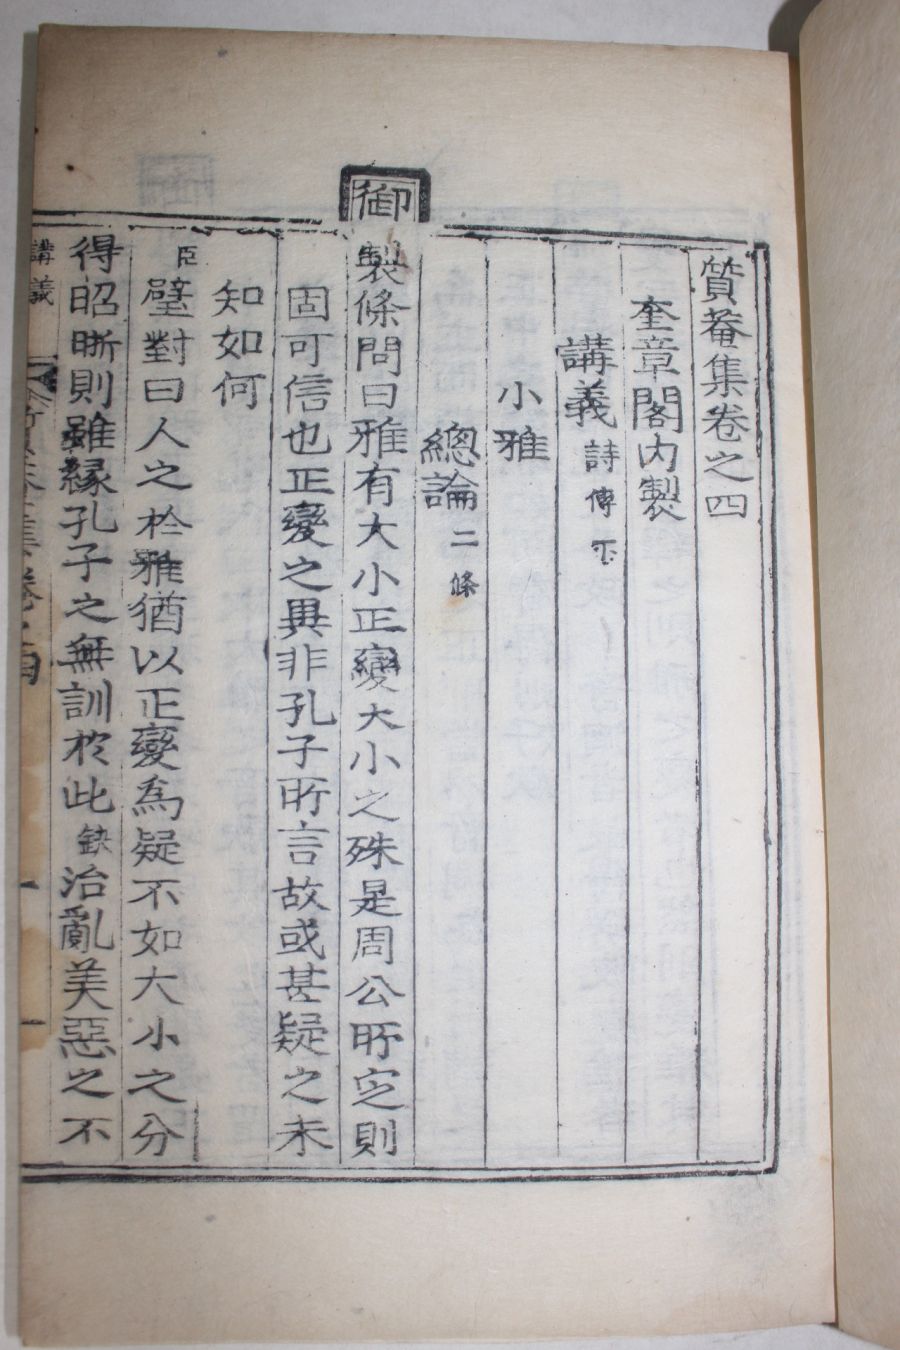 質菴集卷之四
奎章閣內製
講義詩傳
小雅
總論二條
御製條問曰雅有大小正變大小之殊是周公所定則
固可信也正變之異非孔子所言故或甚疑之未
知如何
臣璧對曰人之於雅猶以正變爲疑不如大小之分
得昭晣則雖緣孔子之無訓於此缺治亂美惡之不
講義